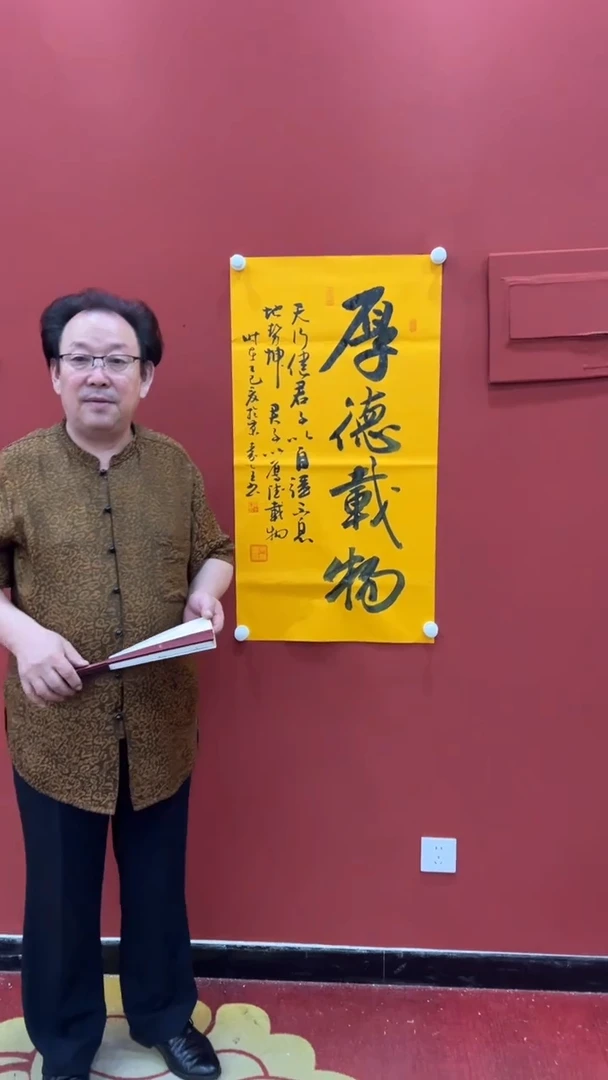 厚德載物
天行健君子以自强不息
地势坤 君子以厚德載物
时在乙巳夏於京